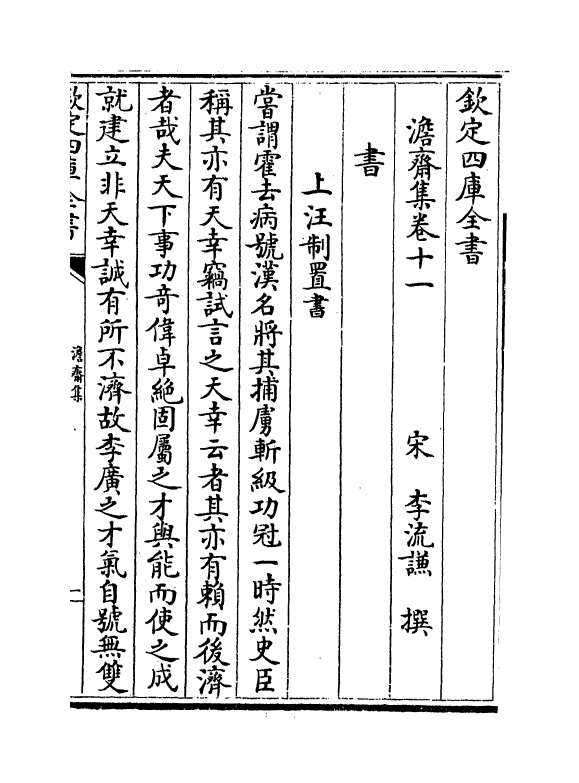 欽定四庫全書
澹齋集卷十一 宋 李流謙 撰
書
上汪制置書
嘗謂霍去病號漢名將其捕虜斬級功冠一時然史臣
稱其亦有天幸竊試言之天幸云者其亦有賴而後濟
者哉夫天下事功奇偉卓絶固屬之才與能而使之成
就建立非天幸誠有所不濟故李廣之才氣自號無雙
欽定四庫全書
澹齋集